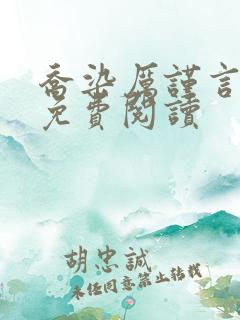 喬染厲謹言
免費閱讀
胡忠誠
未经同意禁止转载